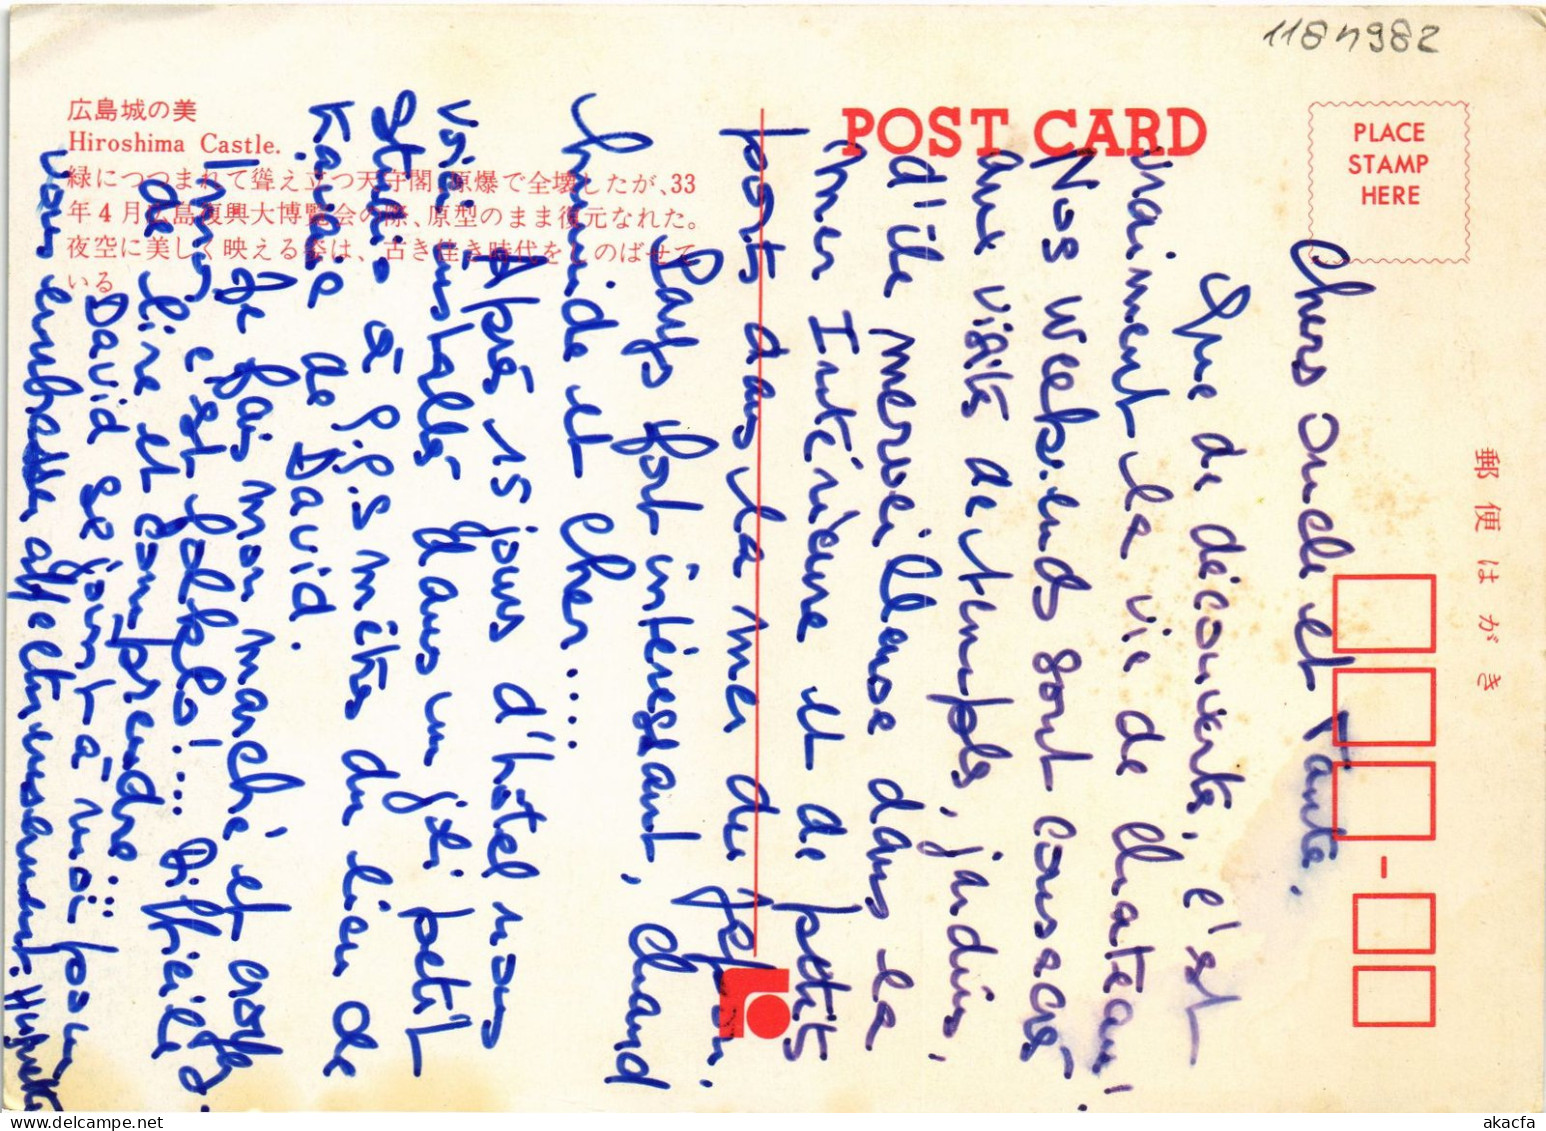 1184982
広島城の美
Hiroshima Castle.
緑につつまれて聳え立つ天守閣、原爆で全壊したが、33
年4月広島復興大博覧会の際、原型のまま復元なれた。
夜空に美しく映える姿は、古き佳き時代をしのばせて
いる
POST CARD
PLACE
STAMP
HERE
郵便はがき
Chers oncle et Tante,
Que de découverte, c'est
vraiment la vie de chateau!
Nos week.ends sont consacrés
aux visites de temples, jardins,
d'île merveilleuse dans la
mer Intérieure et de petits
ports dans la mer du Japon.
Pays fort intéressant, chaud
humide et cher....
Après 15 jours d'hôtel nous
voici installés dans un joli petit
studio à mètres du lieu de
de David.
Je fais mon marché et croyez
moi c'est folklo!... Difficile
de lire et comprendre
David se joint à moi pour
vous embrasser affectueusement.
akacfa